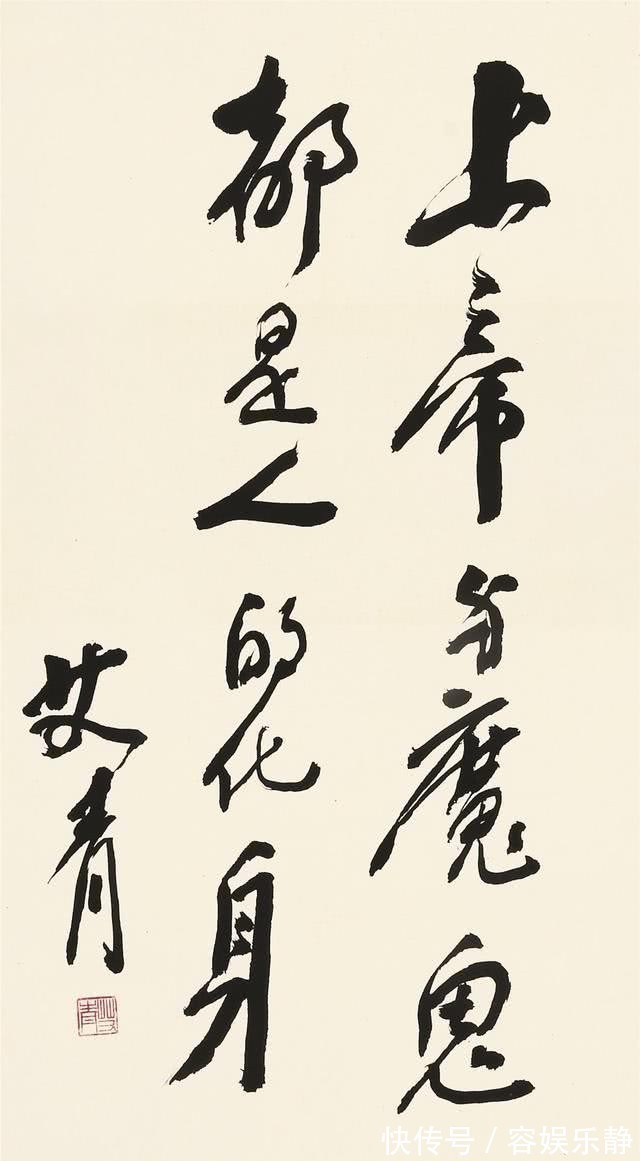 上帝与魔鬼
都是人的化身
艾青
艾青
快传号／容娱乐静